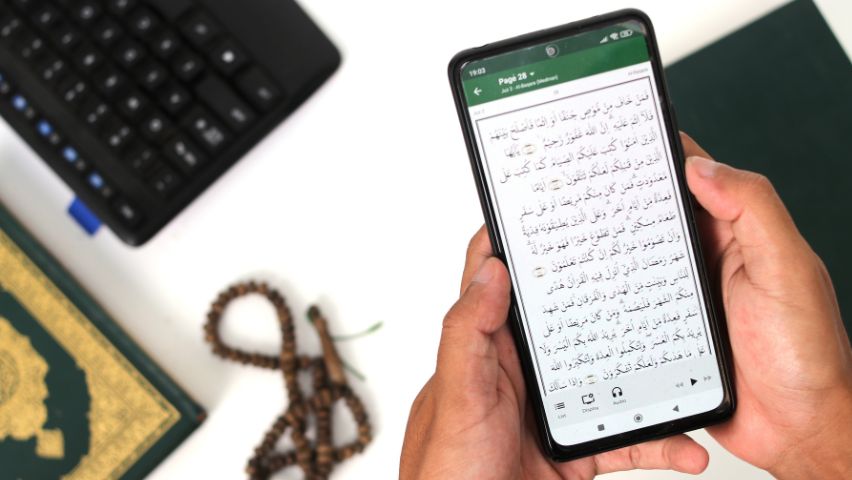 19:03
Page 28
Juz 2 - Al-Baqara (Medinan)
فَمَنْ خَافَ مِنْ مُّوْصٍ جَنَفًا اَوْ اِثْمًا فَاَصْلَحَ بَيْنَهُمْ
فَلَآ اِثْمَ عَلَيْهِ ۗ اِنَّ اللّٰهَ غَفُوْرٌ رَّحِيْمٌ يٰٓاَيُّهَا
الَّذِيْنَ اٰمَنُوْا كُتِبَ عَلَيْكُمُ الصِّيَامُ كَمَا كُتِبَ عَلَى
الَّذِيْنَ مِنْ قَبْلِكُمْ لَعَلَّكُمْ تَتَّقُوْنَ اَيَّامًا
مَّعْدُوْدٰتٍ ۗ فَمَنْ كَانَ مِنْكُمْ مَّرِيْضًا اَوْ عَلٰى سَفَرٍ
فَعِدَّةٌ مِّنْ اَيَّامٍ اُخَرَ ۗ وَعَلَى الَّذِيْنَ يُطِيْقُوْنَهٗ فِدْيَةٌ
طَعَامُ مِسْكِيْنٍ ۗ فَمَنْ تَطَوَّعَ خَيْرًا فَهُوَ خَيْرٌ لَّهٗ ۗ
وَاَنْ تَصُوْمُوْا خَيْرٌ لَّكُمْ اِنْ كُنْتُمْ تَعْلَمُوْنَ
شَهْرُ رَمَضَانَ الَّذِيْٓ اُنْزِلَ فِيْهِ الْقُرْاٰنُ هُدًى
لِّلنَّاسِ وَبَيِّنٰتٍ مِّنَ الْهُدٰى وَالْفُرْقَانِ ۚ فَمَنْ شَهِدَ
مِنْكُمُ الشَّهْرَ فَلْيَصُمْهُ ۗ وَمَنْ كَانَ مَرِيْضًا اَوْ عَلٰى
سَفَرٍ فَعِدَّةٌ مِّنْ اَيَّامٍ اُخَرَ ۗ يُرِيْدُ اللّٰهُ بِكُمُ الْيُسْرَ وَلَا
يُرِيْدُ بِكُمُ الْعُسْرَ ۖ وَلِتُكْمِلُوا الْعِدَّةَ وَلِتُكَبِّرُوا اللّٰهَ
عَلٰى مَا هَدٰىكُمْ وَلَعَلَّكُمْ تَشْكُرُوْنَ وَاِذَا سَاَلَكَ
List Display Audio